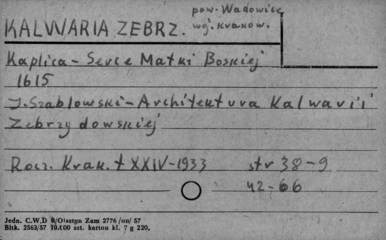 pow. Wadowice
KALWARIA ZEBRZ. woj. Krakow.
Kaplica - Serce Matki Boskiej
1615
J. Szablowski - Architektura Kalwarii
Zebrzydowskiej
Rocz. Krak. t XXIV - 1933 str 38-9
42-66
Jedn. C.W.D 8/Olsztyn Zam 2776 /on/ 57
Bltk. 2563/57 10.000 szt. karton kl. 7 g 220.